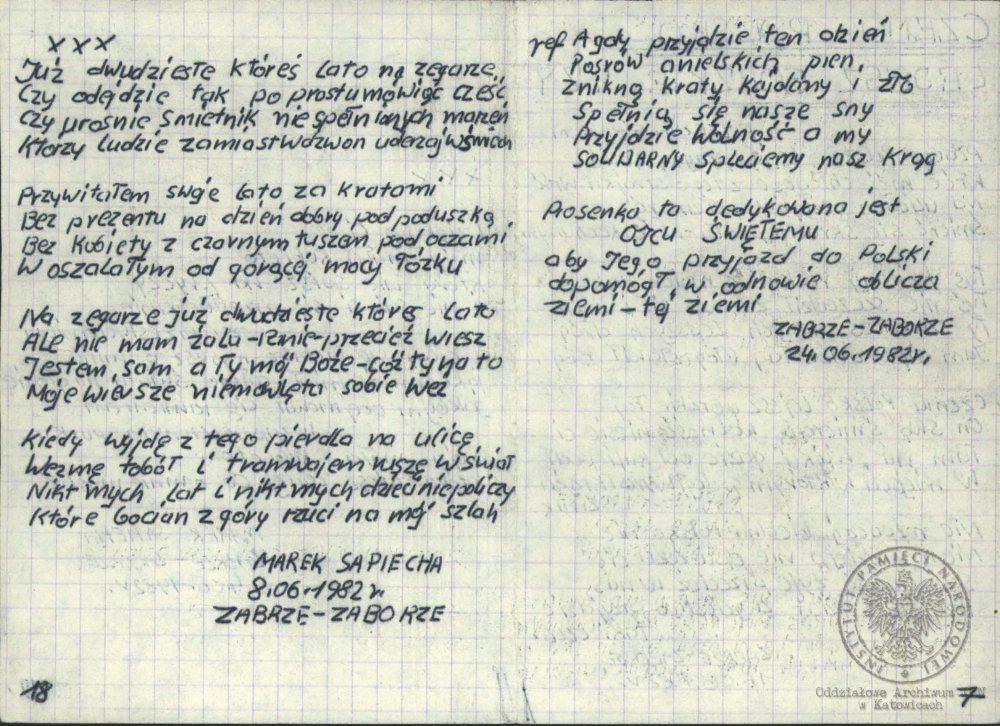 xxx
Już dwudzieste któreś lato na zegarze
Czy odejdzie tak po prostu mówiąc cześć
Czy urośnie śmietnik niespełnionych marzeń
Którzy ludzie zamiast w dzwon uderzają w śmiech
Przywitałem swoje lato za kratami
Bez prezentu na dzień dobry pod poduszką
Bez kobiety z czarnym tuszem pod oczami
W oszalałym od gorącej mocy łóżku
Na zegarze już dwudzieste któreś lato
Ale nie mam żalu - przecież wiesz
Jestem sam a Ty mój Boże - cóż ty na to
Moje wiersze niemowlęta sobie weź
Kiedy wyjdę z tego pierdla na ulicę
Wezmę tobół i tramwajem ruszę w świat
Nikt mych lat i nikt mych dzieci nie policzy
Które bocian z góry rzuci na mój szlah
MAREK SAPIECHA
8.06.1982 r.
ZABRZE-ZABORZE
18
ref A gdy przyjdzie ten dzień
Pośrów anielskich pień,
Znikną kraty kajdany i zło
Spełnią się nasze sny
Przyjdzie Wolność a my
SOLIDARNY spleciemy nasz krąg
Piosenka ta dedykowana jest
OJCU ŚWIĘTEMU
aby Jego przyjazd do Polski
dopomógł w odnowie oblicza
ziemi - tej ziemi
ZABRZE-ZABORZE
24.06.1982 r.
INSTYTUT PAMIĘCI NARODOWEJ
Oddziałowe Archiwum IPN
w Katowicach
7